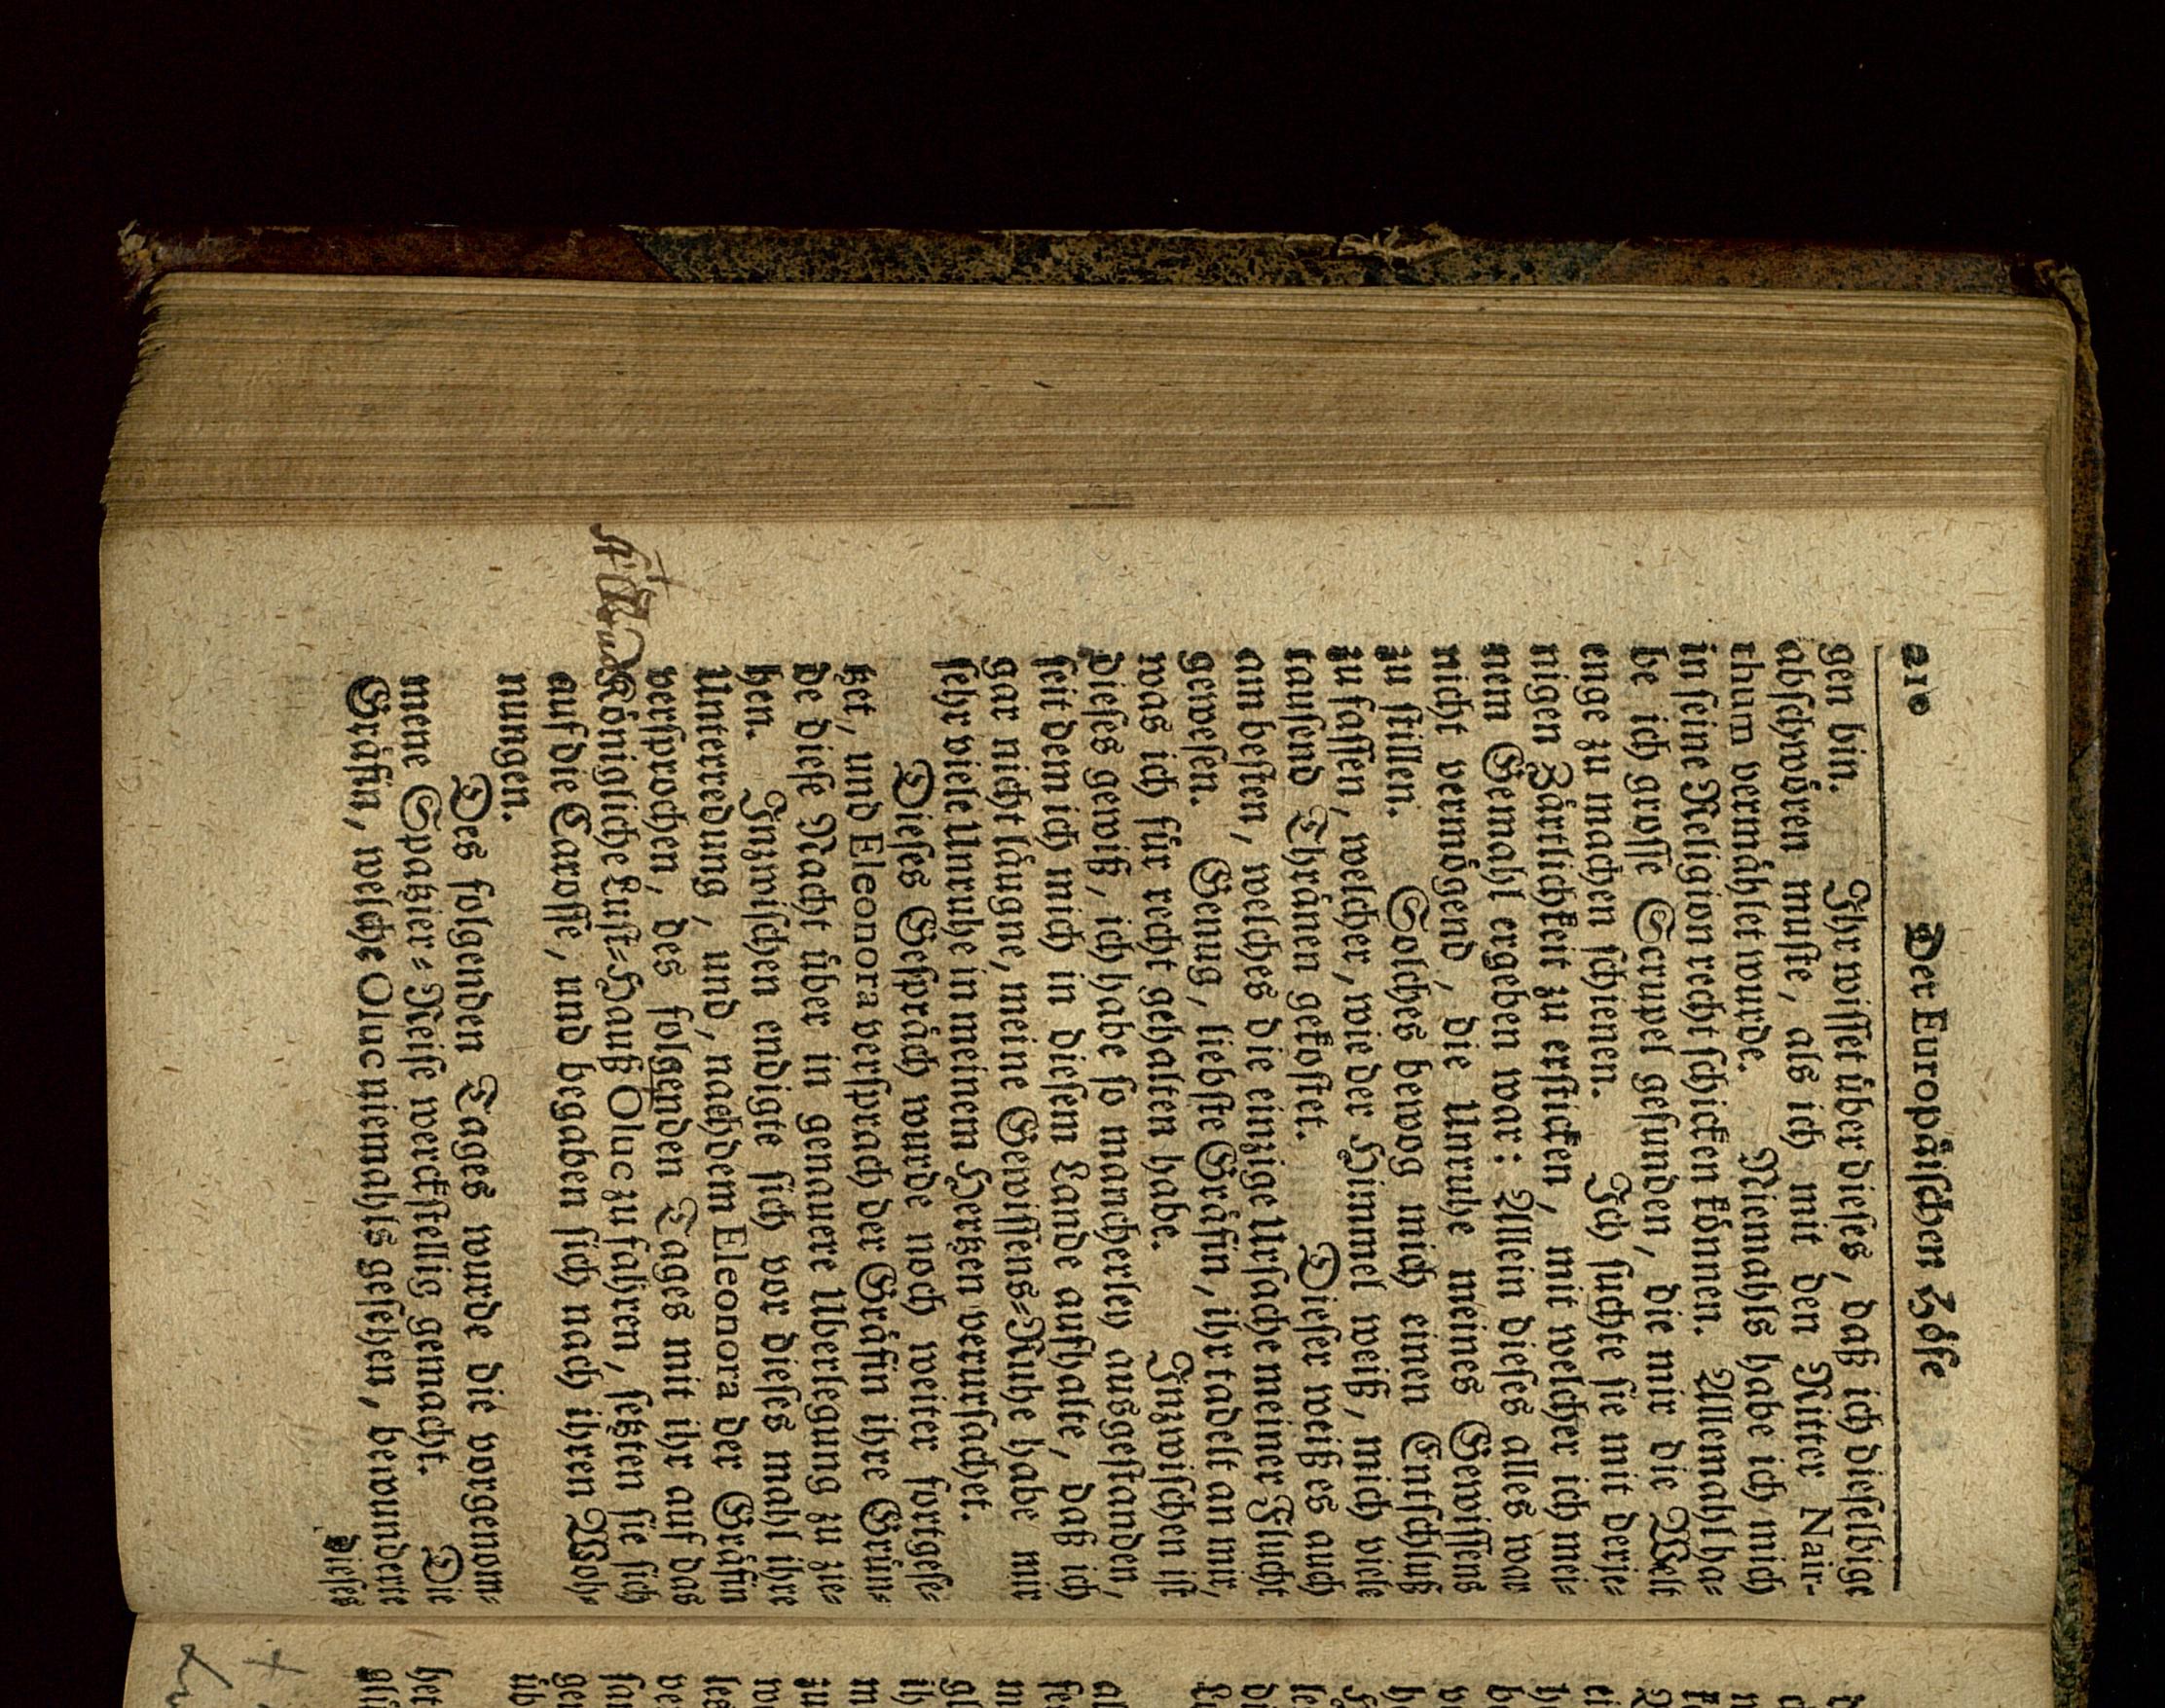 210 Der Europäischen Höfe
gen bin. Ihr wisset über dieses, daß ich dieselbige
abschwören muste, als ich mit den Ritter Nair-
thum vermählet wurde. Niemahls habe ich mich
in seine Religion recht schicken können. Allemahl ha-
be ich grosse Scrupel gefunden, die mir die Welt
enge zu machen schienen. Ich suchte sie mit derje-
nigen Zärtlichkeit zu ersticken, mit welcher ich mei-
nem Gemahl ergeben war: Allein dieses alles war
nicht vermögend, die Unruhe meines Gewissens
zu stillen. Solches bewog mich einen Entschluß
zu fassen, welcher, wie der Himmel weiß, mich viele
tausend Thränen gekostet. Dieser weiß es auch
am besten, welches die einzige Ursache meiner Flucht
gewesen. Genug, liebste Gräfin, ihr tadelt an mir,
was ich für recht gehalten habe. Inzwischen ist
dieses gewiß, ich habe so mancherley ausgestanden,
seit dem ich mich in diesem Lande aufhalte, daß ich
gar nicht läugne, meine Gewissens-Ruhe habe mir
sehr viele Unruhe in meinem Hertzen verursachet.
Dieses Gespräch wurde noch weiter fortgese-
tzet, und Eleonora versprach der Gräfin ihre Grün-
de diese Nacht über in genauere Uberlegung zu zie-
hen. Inzwischen endigte sich vor dieses mahl ihre
Unterredung, und, nachdem Eleonora der Gräfin
versprochen, des folgenden Tages mit ihr auf das
Königliche Lust-Hauß Oluc zu fahren, setzten sie sich
auf die Carosse, und begaben sich nach ihren Woh-
nungen.
Des folgenden Tages wurde die vorgenom-
mene Spatzier-Reise werckstellig gemacht. Die
Gräfin, welche Oluc niemahls gesehen, bewunderte
dieses